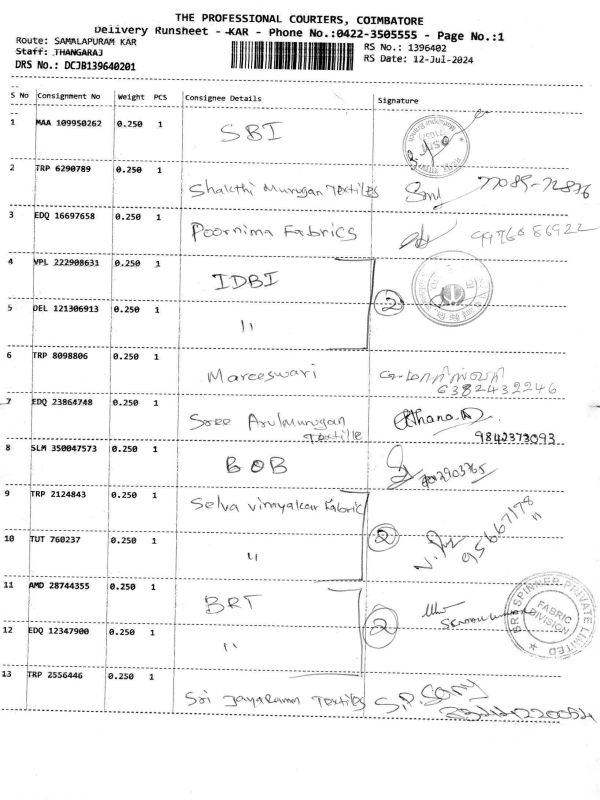 THE PROFESSIONAL COURIERS, COIMBATORE
Delivery Runsheet - KAR - Phone No.:0422-3505555 - Page No.:1
Route: SAMALAPURAM KAR
RS No.: 1396402
Staff: THANGARAJ
RS Date: 12-Jul-2024
DRS No.: DCJB139640201
S No Consignment No Weight PCS Consignee Details Signature
1 MAA 109950262 0.250 1 SBI
2 TRP 6290789 0.250 1 Shakthi Murugan Textiles
3 EDQ 16697658 0.250 1 Poornima Fabrics 9976086922
4 VPL 222908631 0.250 1 IDBI
2
5 DEL 121306913 0.250 1 "
6 TRP 8098806 0.250 1 Mareeswari
6382432246
7 EDQ 23864748 0.250 1 Sree Arulmurugan
Textille
9842373093
8 SLM 350047573 0.250 1 BOB
9 TRP 2124843 0.250 1 Selva vinayakar Fabric
2
10 TUT 760237 0.250 1 "
11 AMD 28744355 0.250 1 BRT
2
BRT SPINNER PRIVATE LIMITED
FABRIC
DIVISION
12 EDQ 12347900 0.250 1 "
13 TRP 2556446 0.250 1 Sri Jayaramm Textiles